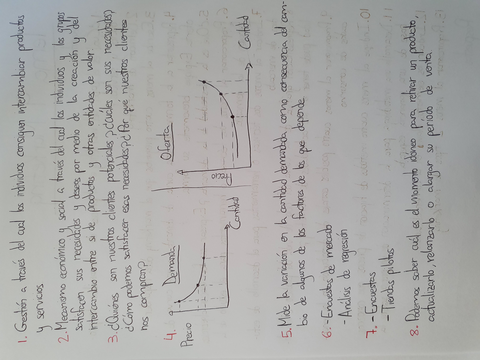 1. Gestión a través del cual los individuos consiguen intercambiar productos
y servicios
2. Mecanismo económico y social a través del cual los individuos y los grupos
satisfacen sus necesidades y deseos por medio de la creación y del
intercambio entre sí de productos y otras entidades de valor
3. ¿Quiénes son nuestros clientes potenciales? ¿Cuáles son sus necesidades?
¿Cómo podemos satisfacer esas necesidades? ¿Por qué nuestros clientes
nos compran?
4. Demanda
Precio
Cantidad
Oferta
Precio
Cantidad
5. Mide la variación en la cantidad demandada como consecuencia del cam-
bio de algunos de los factores de los que depende
6. - Encuestas de mercado
- Análisis de regresión
7. - Encuestas
- Tiendas pilotos
8. Podemos saber cuál es el momento idóneo para retirar un producto,
actualizarlo, relanzarlo o alargar su período de venta